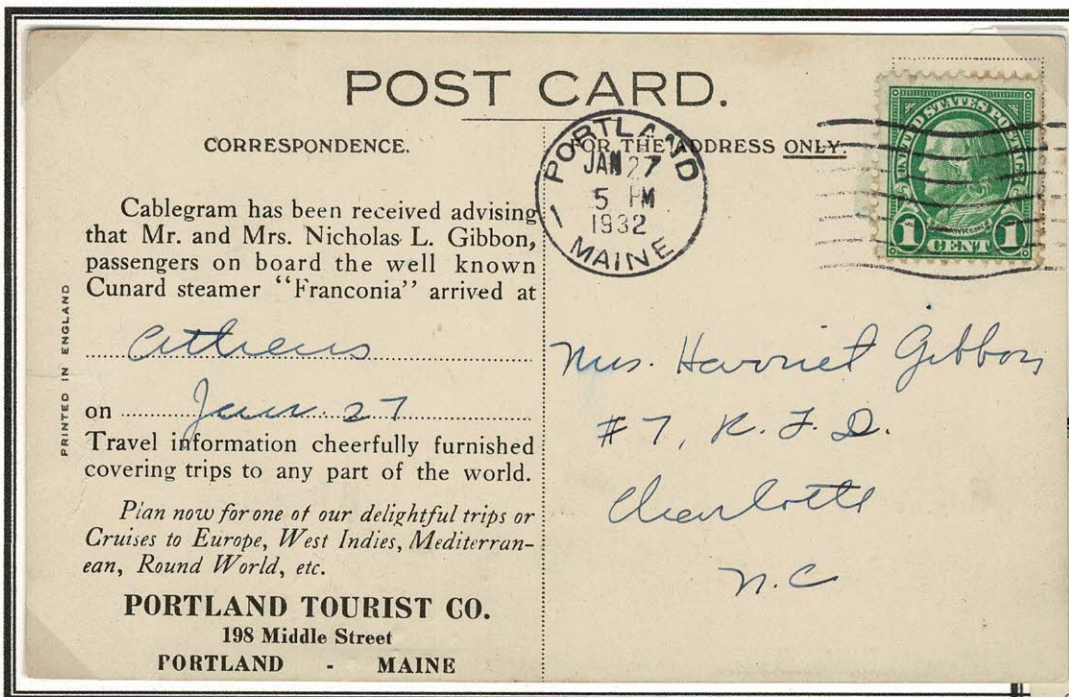 POST CARD.
CORRESPONDENCE.
Cablegram has been received advising
that Mr. and Mrs. Nicholas L. Gibbon,
passengers on board the well known
Cunard steamer “Franconia” arrived at
Athens
on Jan. 27
Travel information cheerfully furnished
covering trips to any part of the world.
Plan now for one of our delightful trips or
Cruises to Europe, West Indies, Mediterran-
ean, Round World, etc.
PORTLAND TOURIST CO.
198 Middle Street
PORTLAND - MAINE
PRINTED IN ENGLAND
FOR THE ADDRESS ONLY.
PORTLAND
JAN 27
5 PM
1932
MAINE
UNITED STATES POSTAGE
FRANKLIN
1 CENT 1
Mrs. Harriet Gibbon
#7, R.F.D.
Charlotte
N.C